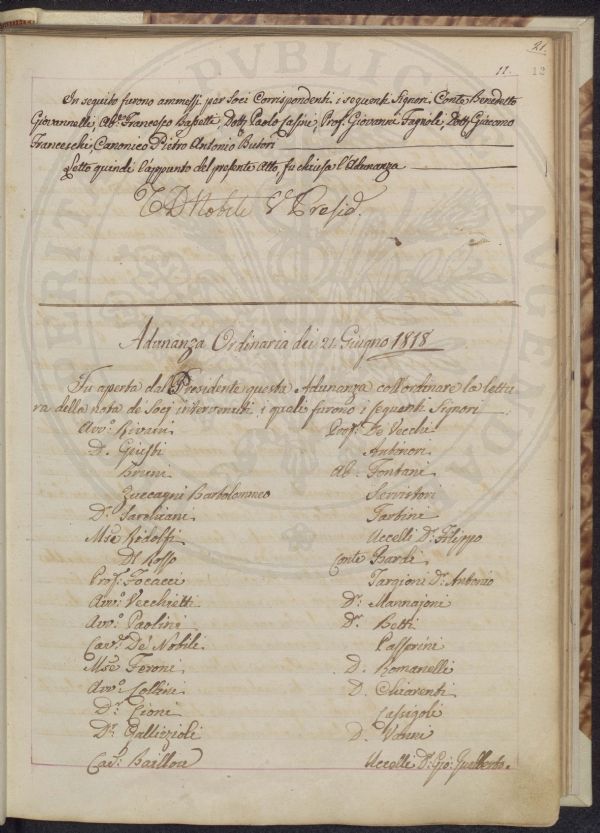 21.
11. 12
In seguito furono ammessi per Soci Corrispondenti i seguenti Signori. Conte Benedetto
Giovannelli, Ab.e Francesco Bassetti, Dott. Paolo Cassini, Prof. Giovanni Fagnoli, Dott. Giacomo
Franceschi, Canonico Pietro Antonio Butori
Letto quindi l'appunto del presente Atto fu chiusa l'Adunanza
T. D. Nobili V.e Presid.
Adunanza Ordinaria dei 21. Giugno 1818
Fu aperta dal Presidente questa Adunanza coll'ordinare la lettu
ra della nota de' Socj intervenuti i quali furono i seguenti Signori
Avv.o Rivani
D. Giusti
Bruni
Zuccagni Bartolommeo
D.r Sarchiani
M.se Ridolfi
Del Rosso
Prof. Focacci
Avv.o Vecchietti
Avv.o Paolini
Cav.r De' Nobili
M.se Feroni
Avv.o Collini
D.r Cioni
D.r Gallizioli
Cav. Baillou
Prof. De Vecchi
Antinori
Ab. Fontani
Serristori
Tartini
Uccelli D. Filippo
Conte Bardi
Targioni D. Antonio
D.r Mannajoni
D.r Betti
Passerini
D. Romanelli
D. Chiarenti
Cassigoli
D. Vanni
Uccelli D. Gio: Gualberto.
PUBLICAE
AUGENDAE